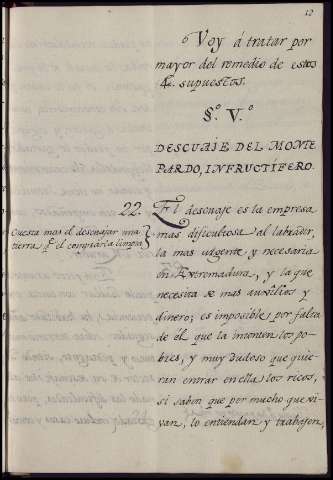 12
Voy á tratar por
mayor del remedio de estos
4. supuestos.
§.º V.º
DESCUAJE DEL MONTE
PARDO, INFRUCTÍFERO.
22. El descuaje es la empresa
Cuesta mas el descuajar una
tierra q.e el comprarla limpia
mas dificultosa al labrador,
la mas urgente y necesaria
en Extremadura, y la que
necesita de mas auxilios y
dinero; es imposible por falta
de él que la intenten los po-
bres, y muy dudoso que quie-
ran entrar en ella los ricos,
si saben que por mucho que vi-
van, lo entiendan y trabajen,